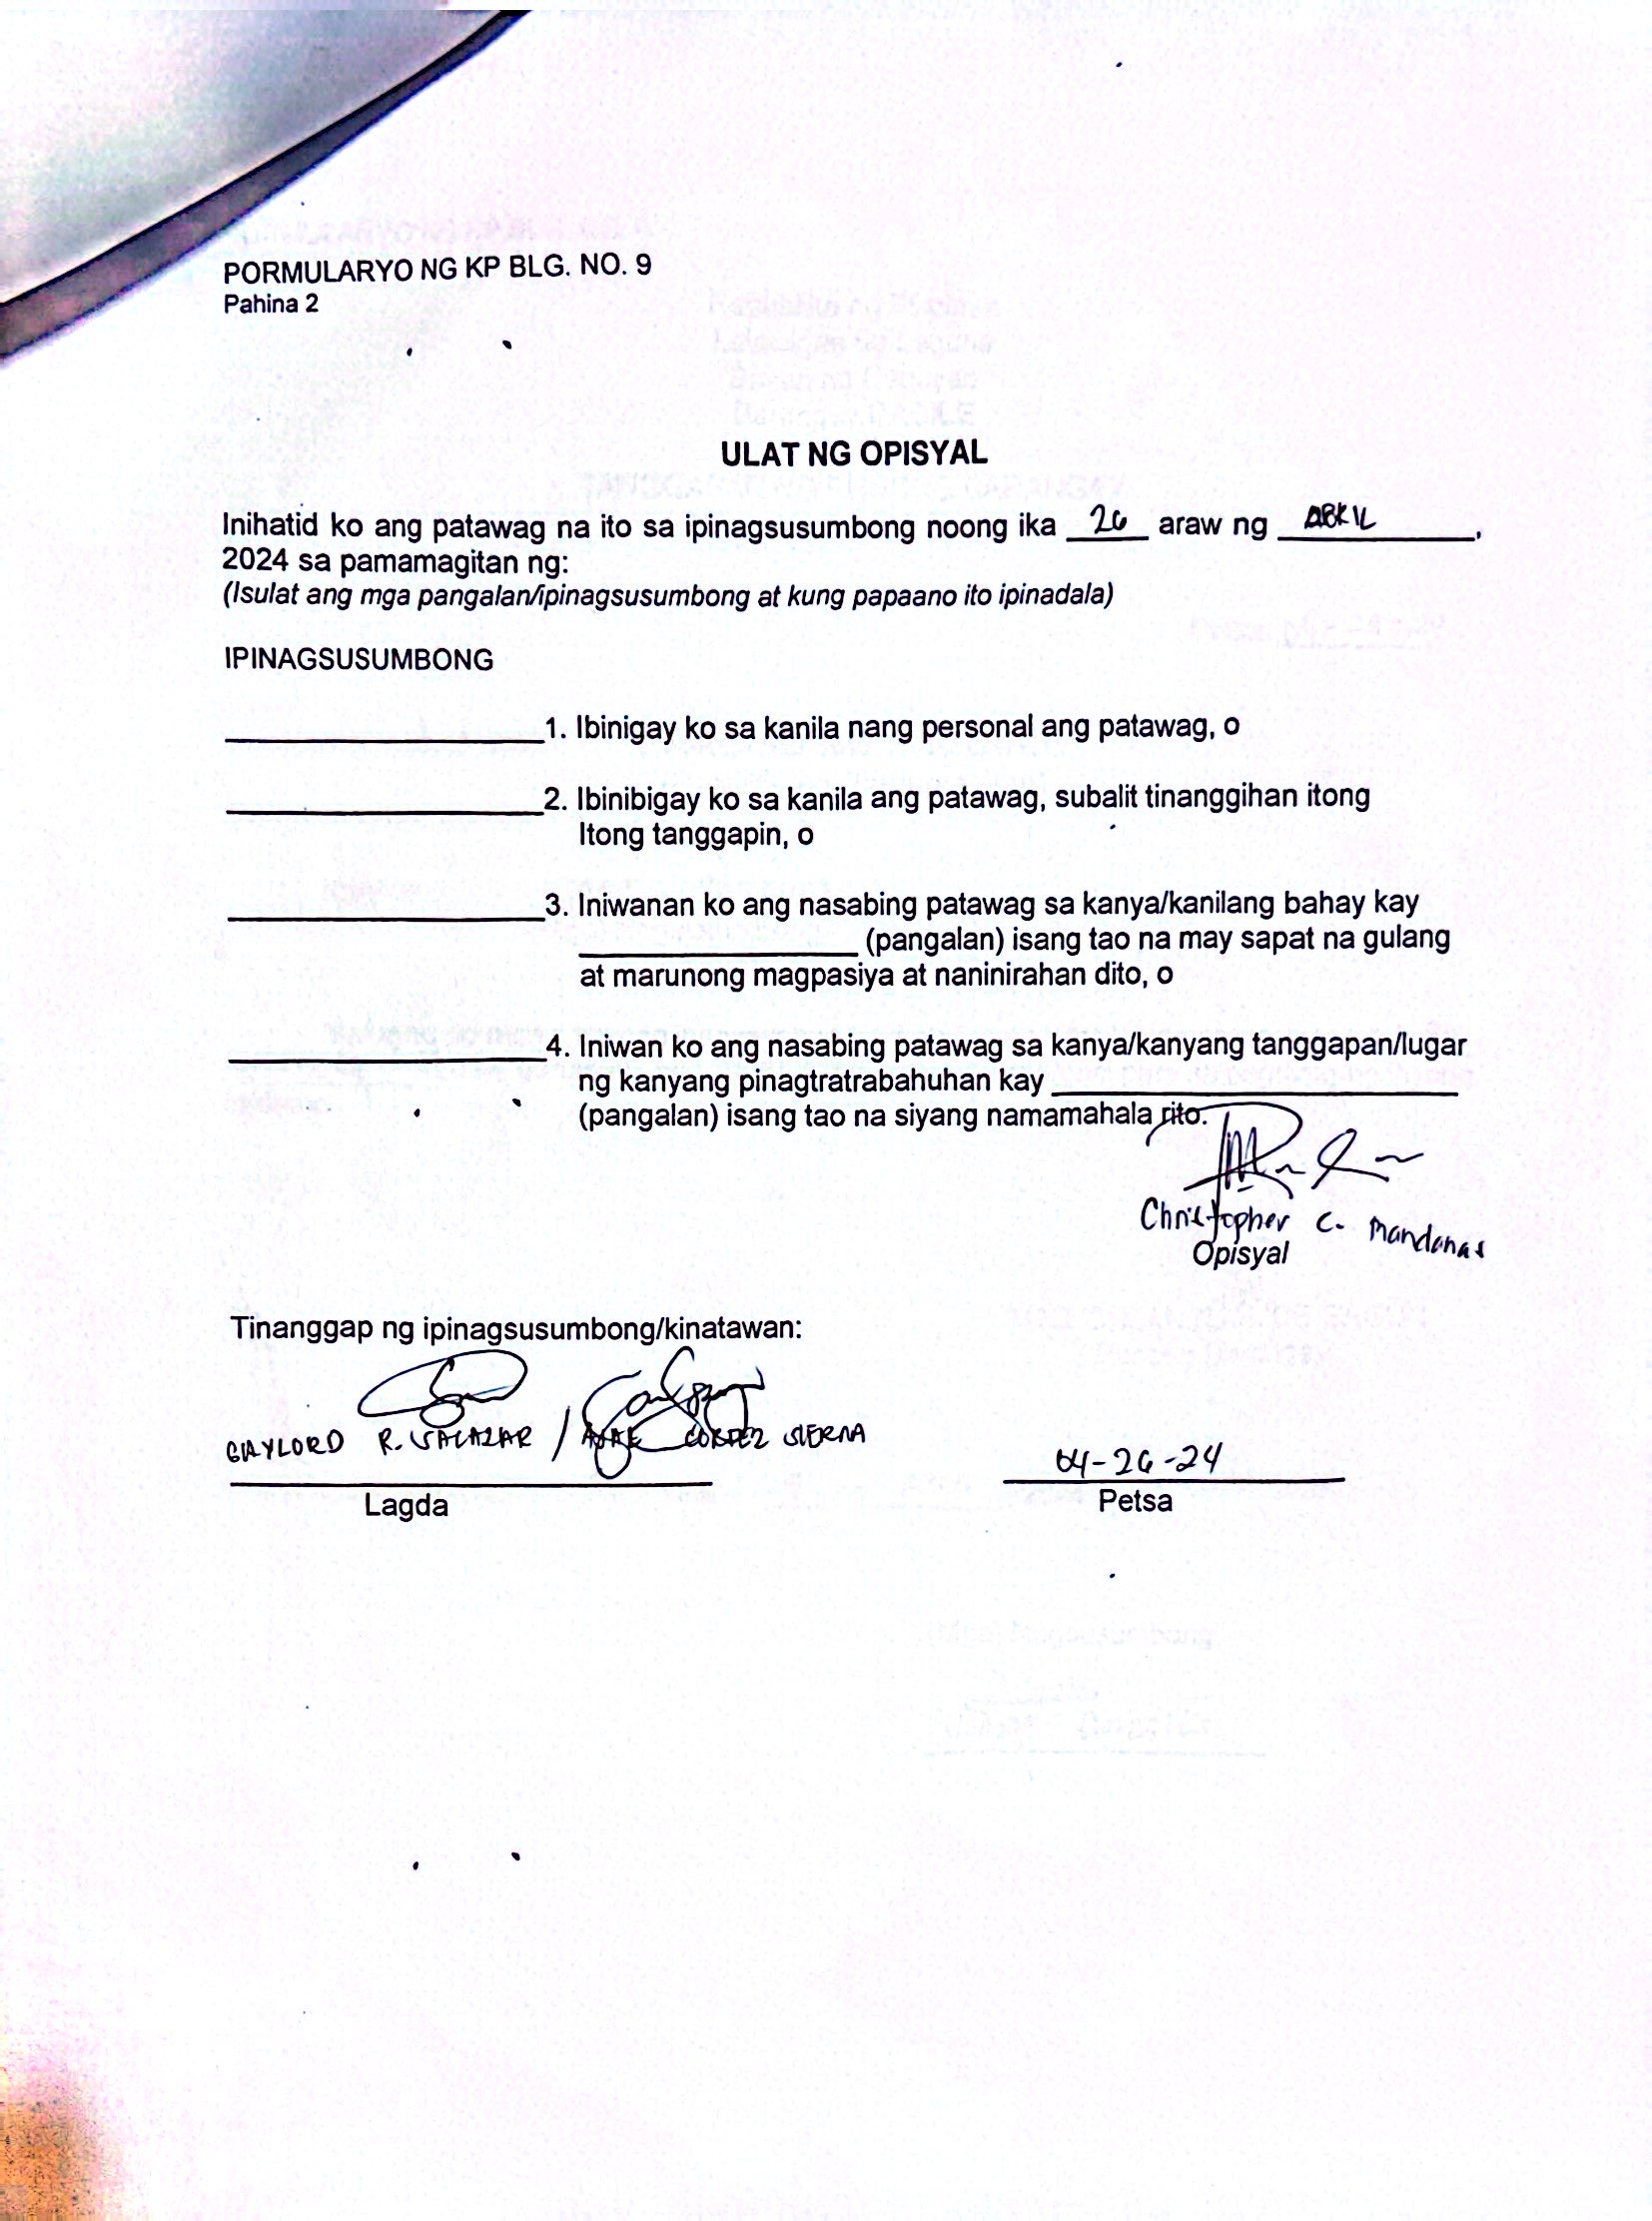 PORMULARYO NG KP BLG. NO. 9
Pahina 2
ULAT NG OPISYAL
Inihatid ko ang patawag na ito sa ipinagsusumbong noong ika 26 araw ng ABRIL,
2024 sa pamamagitan ng:
(Isulat ang mga pangalan/ipinagsusumbong at kung papaano ito ipinadala)
IPINAGSUSUMBONG
1. Ibinigay ko sa kanila nang personal ang patawag, o
2. Ibinibigay ko sa kanila ang patawag, subalit tinanggihan itong
Itong tanggapin, o
3. Iniwanan ko ang nasabing patawag sa kanya/kanilang bahay kay
(pangalan) isang tao na may sapat na gulang
at marunong magpasiya at naninirahan dito, o
4. Iniwan ko ang nasabing patawag sa kanya/kanyang tanggapan/lugar
ng kanyang pinagtratrabahuhan kay
(pangalan) isang tao na siyang namamahala rito.
Christopher C. Mandanas
Opisyal
Tinanggap ng ipinagsusumbong/kinatawan:
GAYLORD R. SALAZAR /
04-26-24
Lagda
Petsa